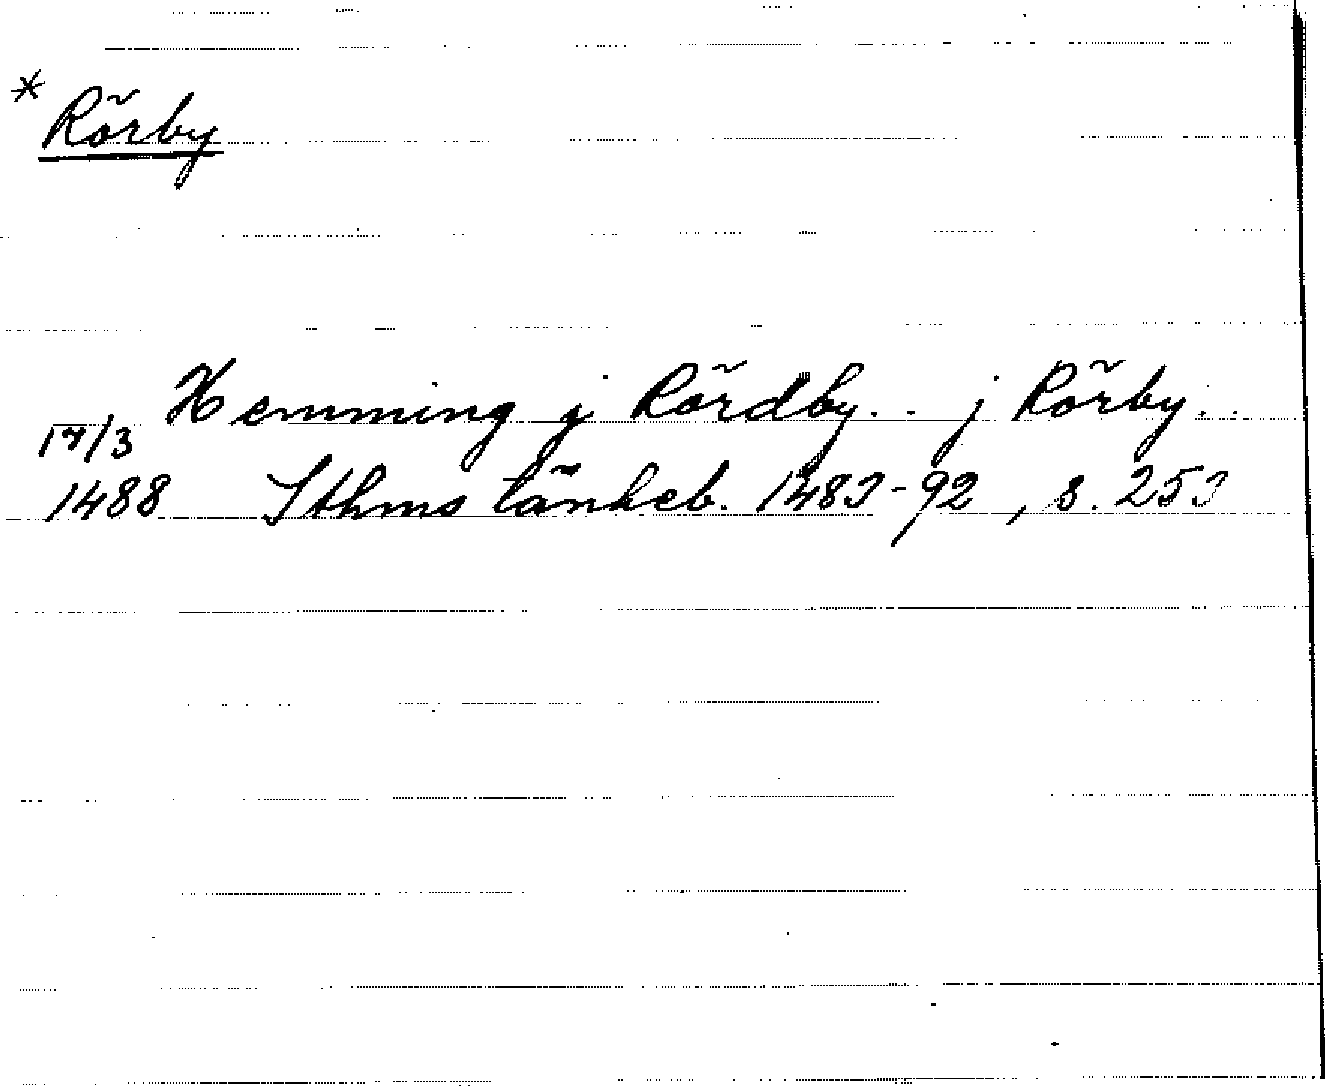 * Rörby
Hemming j Rördby.. j Rörby..
17/3
1488 Sthms tänkeb. 1483-92, s. 253